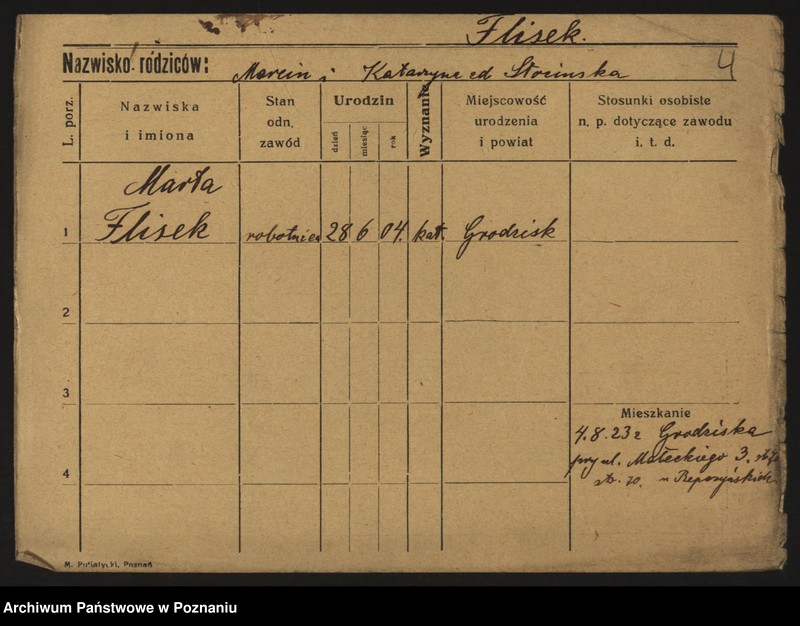 Flisek.
4
Nazwisko rodziców: Marcin i Katarzyna cd
L. porz.
Nazwiska i imiona
Stan odn. zawód
Urodzin
dzień
miesiąc
rok
Wyznanie
Miejscowość urodzenia i powiat
Stosunki osobiste n. p. dotyczące zawodu i. t. d.
Marta
1 Flisek robotnica 28 6 04. kat. Grodzisk
2
3
Mieszkanie
4.8.23 z Grodziska
przy ul. Małeckiego 3.
4
M. Putiatycki, Poznań
Archiwum Państwowe w Poznaniu